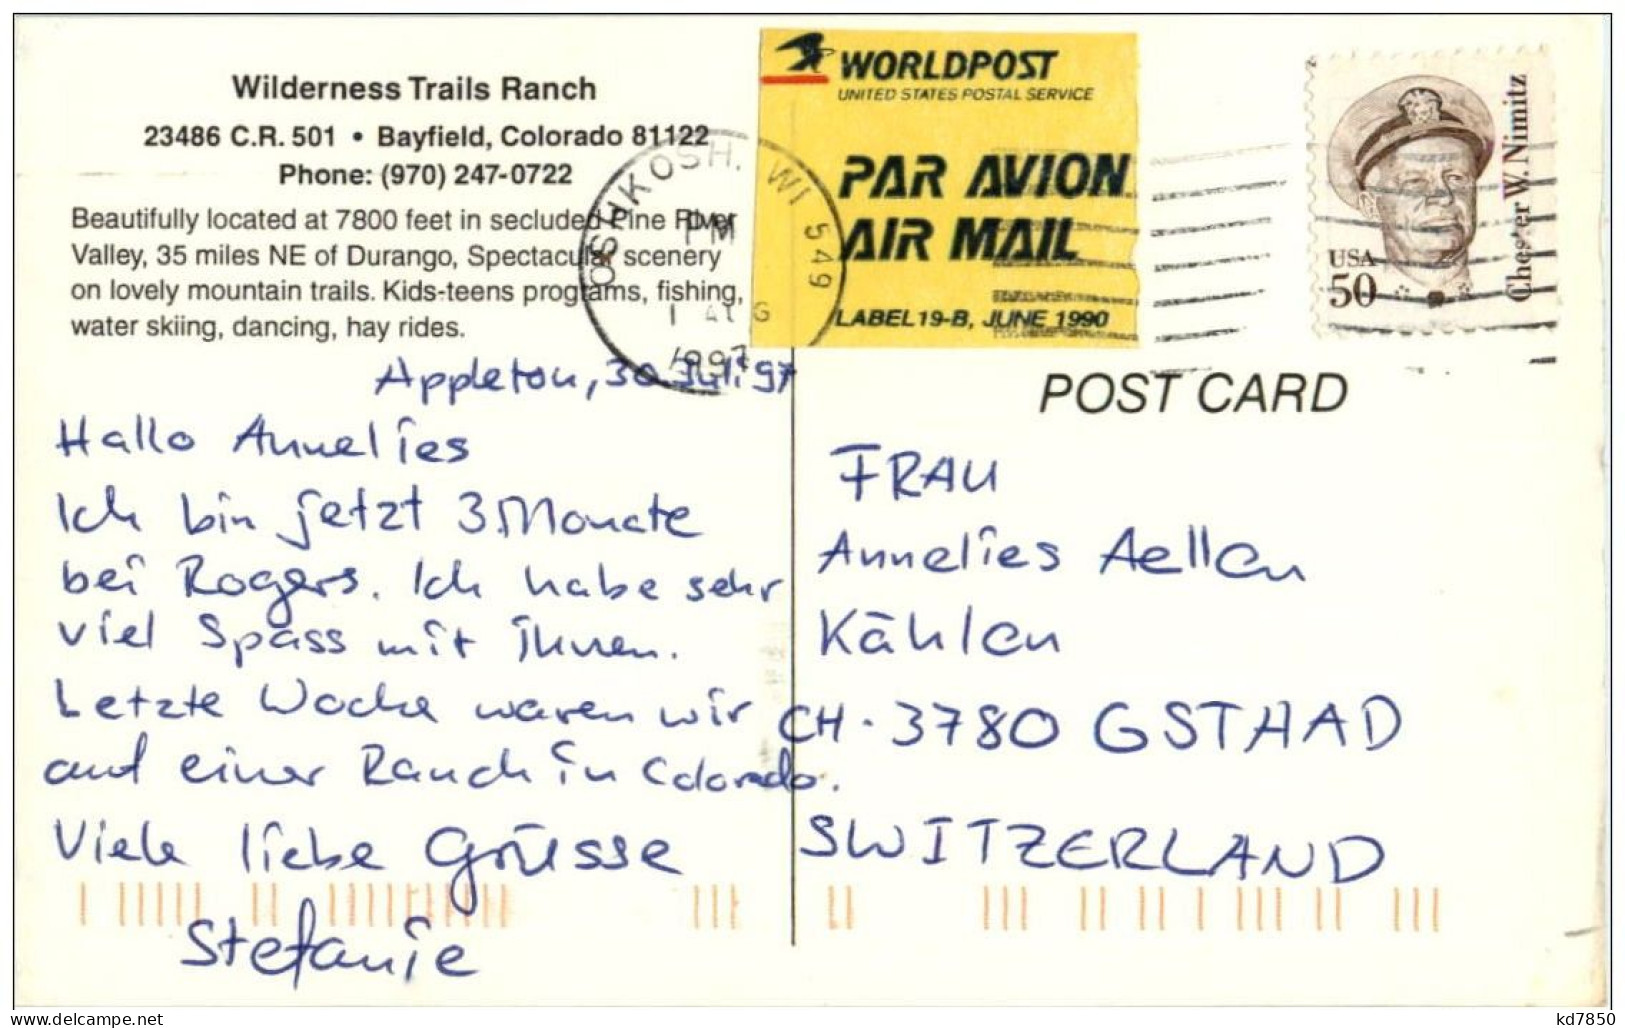 Wilderness Trails Ranch
23486 C.R. 501 • Bayfield, Colorado 81122
Phone: (970) 247-0722
Beautifully located at 7800 feet in secluded Pine River
Valley, 35 miles NE of Durango, Spectacular scenery
on lovely mountain trails. Kids-teens programs, fishing,
water skiing, dancing, hay rides.
OSHKOSH, WI 549
PM
1 AUG
1997
WORLDPOST
UNITED STATES POSTAL SERVICE
PAR AVION
AIR MAIL
LABEL 19-B, JUNE 1990
Chester W. Nimitz
USA
50
POST CARD
Appleton, 30 Juli 97
Hallo Annelies
Ich bin jetzt 3 Monate
bei Rogers. Ich habe sehr
viel Spass mit ihnen.
Letzte Woche waren wir
auf einer Ranch in Colorado.
Viele liebe Grüsse
Stefanie
FRAU
Annelies Aellen
Kählen
CH-3780 GSTHAD
SWITZERLAND
www.delcampe.net
kd7850